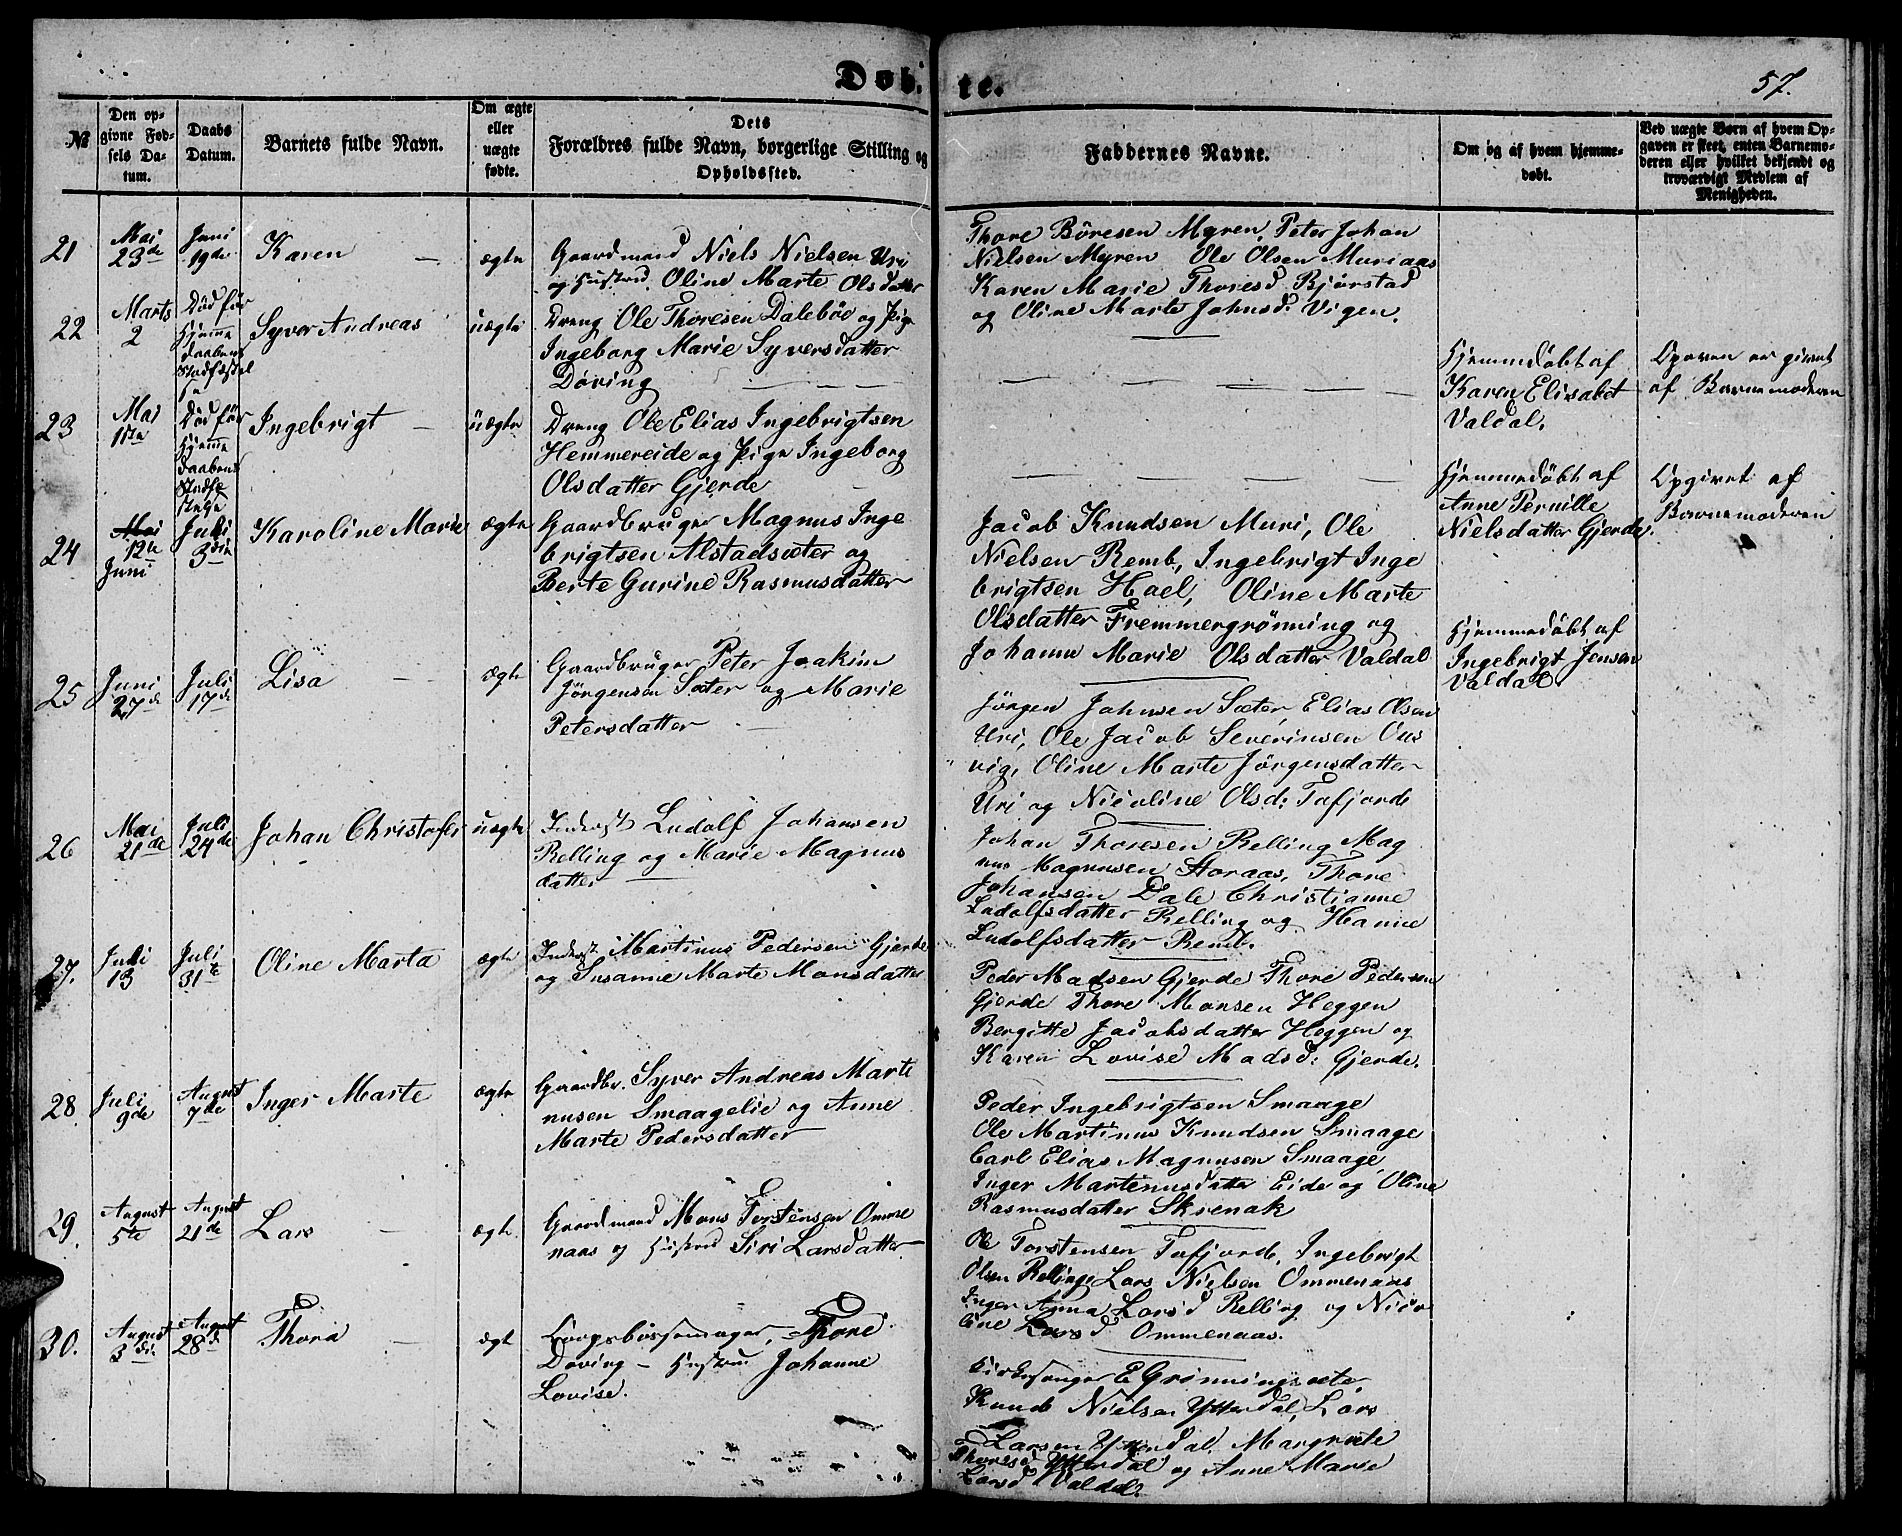 Døb-
te.
57.
№
Den op-
givne Fød-
sels Da-
tum.
Daabs
Datum.
Barnets fulde Navn.
Om ægte
eller
uægte
fødte.
Dets
Forældres fulde Navn, borgerlige Stilling og
Opholdssted.
Faddernes Navne.
Om og af hvem hjemme-
døbt.
Ved uægte Børn af hvem Op-
gaven er skeet, enten Barnemo-
deren eller hvilket bekjendt og
troværdigt Medlem af
Menigheden.
21
Mai
23de
Juni
19de
Karen
ægte
Gaardmand Niels Nielsen Uri
og Hustru Oline Marte Olsdatter
Thore Böresen Myren, Peter Johan
Nielsen Myren Ole Olsen Muriaas
Karen Marie Thoresd. Bjørstad
og Oline Marte Johnsd: Vigen.
22
Marts
2
Död för
Hjemme
daabens
Stadfæstel
se
Syver Andreas
uægte
Dreng Ole Thoresen Dalebøe og Pige
Ingeborg Marie Syversdatter
Döving
Hjemmedöbt af
Karen Elisabet
Valdal.
Opgaven er givet
af Barnemoderen
23
Mai
11te
Död för
Hjemme
daabens
Stadfæ
stelse
Ingebrigt
uægte
Dreng Ole Elias Ingebrigtsen
Hemmereide og Pige Ingeborg
Olsdatter Gjerde
Hjemmedöbt af
Anne Pernille
Nielsdatter Gjerde.
Opgivet af
Barnemoderen
24
Mai
12te
Juni
Juli
3die
Karoline Marie
ægte
Gaardbruger Magnus Inge
brigtsen Alstadsæter og
Berte Gurine Rasmusdatter
Jacob Knudsen Muri, Ole
Nielsen Remb, Ingebrigt Inge
brigtsen Hoel, Oline Marte
Olsdatter Fremmergrönning og
Johanne Marie Olsdatter Valdal
Hjemmedöbt af
Ingebrigt Jensen
Valdal.
25
Juni
27de
Juli
17de
Lisa
ægte
Gaardbruger Peter Joakim
Jörgensen Sæter og Marie
Petersdatter
Jörgen Johnsen Sæter Elias Olsen
Uri, Ole Jacob Severinsen Ous
vig, Oline Marte Jörgensdatter
Uri og Nicoline Olsd: Tafjorde
26
Mai
21de
Juli
24de
Johan Christofer
uægte
Inderst Ludolf Johansen
Relling og Marie Magnus
datter
Johan Thoresen Relling Mag
nus Magnusen Storaas, Thore
Johansen Dale Christianne
Ludolfsdatter Relling og Hanne
Ludolfsdatter Remb.
27.
Juli
13
Juli
31te
Oline Marta
ægte
Inderst Martinus Pedersen Gjerde
og Susanne Marte Monsdatter
Peder Madsen Gjerde Thore Pedersen
Gjerde Thore Monsen Heggen
Bergitte Jacobsdatter Heggen og
Karen Lovise Madsd: Gjerde.
28
Juli
9de
August
7de
Inger Marte
ægte
Gaardbr. Syver Andreas Marte
nusen Smaagelie og Anne
Marte Pedersdatter
Peder Ingebrigtsen Smaage
Ole Martinus Knudsen Smaage
Carl Elias Magnusen Smaage
Inger Martenusdatter Eide og Oline
Rasmusdatter Skjenak
29.
August
5te
August
21de
Lars
ægte
Gaardmand Mons Torstensen Omme
naas og Hustru Siri Larsdatter
Ole Torstensen Tafjorde, Ingebrigt
Olsen Relling Lars Nielsen Ommenaas
Inger Anna Larsd Relling og Nico
line Larsd Ommenaas.
30.
August
3die
August
28de
Thora
ægte
Thore
Döving Hustru Johanne
Lovise.
Kirkesanger E Grönningsæte,
Knud Nielsen Ytterdal, Lars
Larsen Ytterdal. Margrete
Thoresd Ytterdal og Anne Marie
Larsd Valdal.